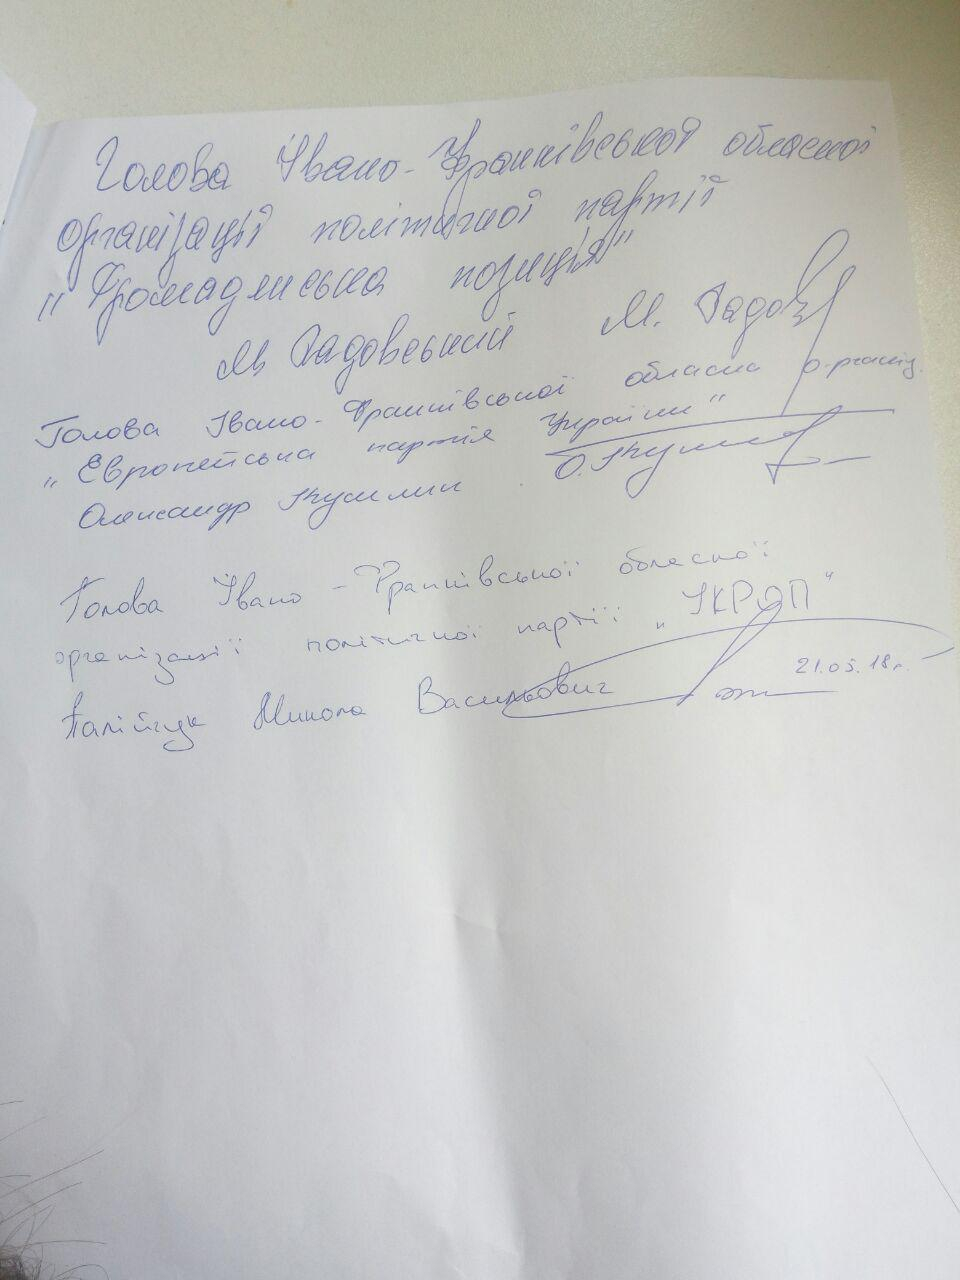 Голова Івано-Франківської обласної
організації політичної партії
„Громадянська позиція"
М. Садовський М. Садов
Голова Івано-Франківської обласна організ.
„Європейська партія України"
Олександр
Голова Івано-Франківської обласної
організації політичної партії „УКРОП"
Палійчук Микола Васильович 21.05.18 г.